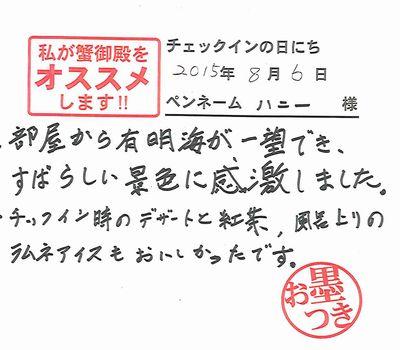 私が蟹御殿を
オススメ
します!!
チェックインの日にち
2015年 8月 6日
ペンネーム ハニー 様
・部屋から有明海が一望でき、
すばらしい景色に感激しました。
・チックイン時のデザートと紅茶、風呂上りの
ラムネアイスもおいしかったです。
お墨つき